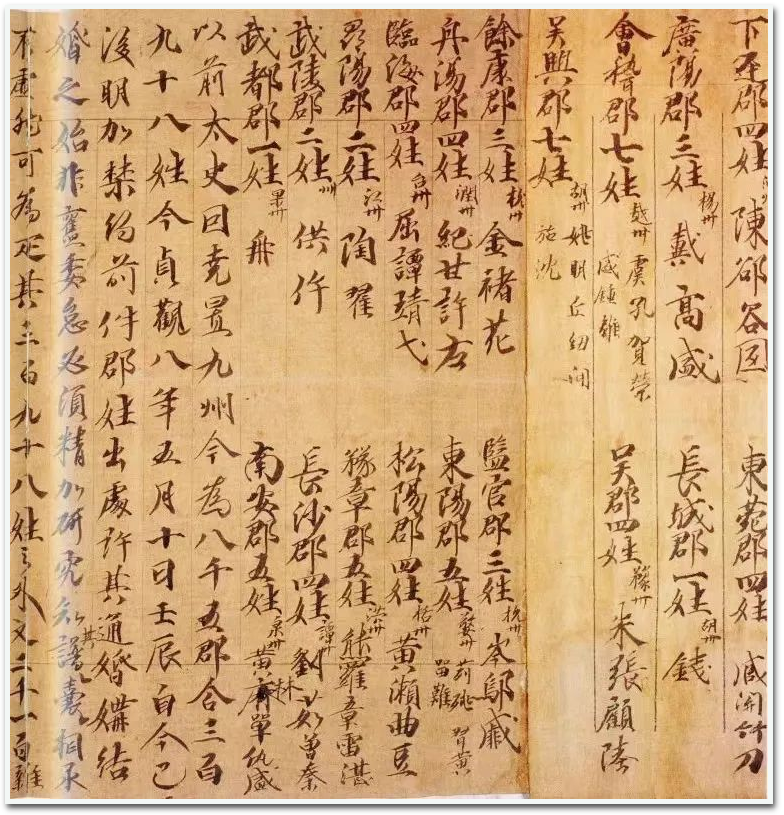 下邳郡四姓 陳邵谷國 東莞郡四姓 臧關竹刀
廣陽郡三姓 楊州 戴高盛 長城郡一姓 胡州 錢
會稽郡七姓 越州 虞孔賀榮盛鍾離 吳郡四姓 蘇州 朱張顧陸
吳興郡七姓 胡州 姚明丘紐聞施沈
餘康郡三姓 杭州 金褚花 監官郡三姓 杭州 岑鄔戚
丹陽郡四姓 潤州 紀甘許左 東陽郡五姓 婺州 習黃留難
臨海郡四姓 台州 屈譚靖弋 松陽郡四姓 括州 黃瀨曲豆
尋陽郡二姓 江州 陶翟 豫章郡五姓 洪州 熊羅章雷湛
武陵郡二姓 州 供仵 長沙郡四姓 譚州 劉茹曾秦
武都郡一姓 果州 冉 南安郡五姓 泉州 黃林單仇盛
以前太史因堯置九州今為八千五郡合三百
九十八姓今貞觀八年五月十日壬辰自今已
後明加禁約前件郡姓出處許其通婚媾結
婚之始非舊委怠必須精加研究知其譜囊相承
不虛然可為疋其三百九十八姓之外又二千一百雜